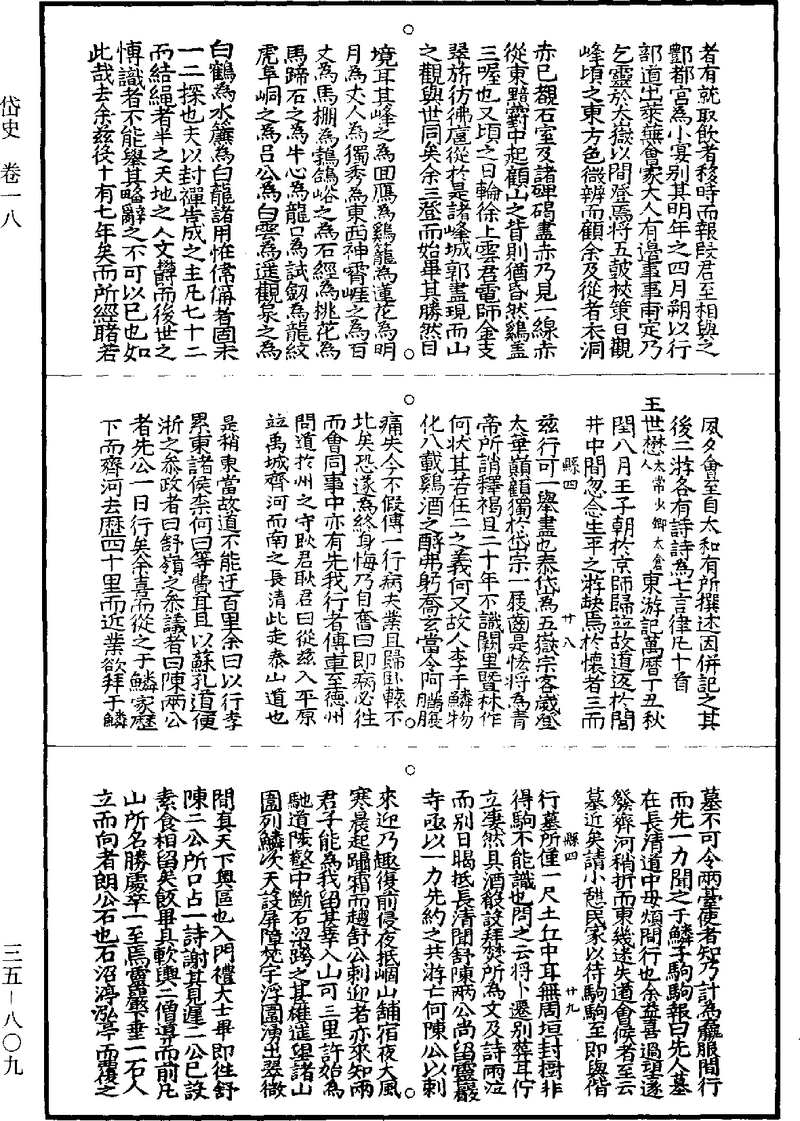 岱史 卷一八
三五-八〇九
者有就取飲者移時而報段君至相與之
酆都宮為小宴別其明年之四月朔以行
部道出萊蕪會家大人有邊事事甫定乃
乞靈於太嶽以間登焉將五鼓杖策日觀
峰頃之東方色微辨而顧余及從者衣洞
赤已觀石室及諸碑碣盡赤乃見一線赤
從東黯䨴中起顧山之背則猶昏然鷄盖
三喔也又頃之日輪徐上雲君電師金支
翠旂彷彿扈從於是諸峰城郭盡現而山
之觀與世同矣余三登而始畢其勝然目
境耳其峰之為回鴈為鷄籠為蓮花為明
月為丈人為獨秀為東西神霄崖之為百
丈為馬棚為鵓鴿峪之為石經為桃花為
馬蹄石之為牛心為龍口為試劒為龍紋
虎阜峒之為呂公為白雲為遥觀泉之為
白鶴為水簾為白龍諸用恠偉偁者固未
一二探也夫以封禪告成之主凡七十二
而結繩者半之天地之人文欝而後世之
慱識者不能舉其略辭之不可以已也如
此哉去余兹役十有七年矣而所經睹若
夙夕會至自太和有所撰述因併記之其
後二游各有詩詩為七言律凡十首
王世懋太常少卿太倉人東游記萬曆丁丑秋
閏八月王子朝於京師歸竝故道返於閭
井中間忽念生平之游缺焉於懷者三而
兹行可一舉盡也泰岱為五嶽宗客歲登
太華巔顧獨於岱宗一屐齒是恡將為青
帝所誚釋褐且二十年不識闕里暨林作
何狀其若在三之義何又故人李于鱗物
化八載鷄酒之酹弗躬喬玄當令阿瞞腹
痛失今不假傳一行病夫業且歸臥轅不
北矣恐遂為終身悔乃自奮曰即病必往
而會同事中亦有先我行者傳車至德州
問道於州之守耿君耿君曰從兹入平原
竝禹城齊河而南之長清此走泰山道也
是稍東當故道不能迂百里余曰以行李
累東諸侯柰何曰等費耳且以蘇孔道便
浙之叅政者曰舒嶺之叅議者曰陳兩公
者先公一日行矣余喜而從之于鱗家歷
下而齊河去歷四十里而近業欲拜于鱗
縣四
廿八
墓不可令兩臺使者知乃計為羸服間行
而先一力聞之于鱗子駒駒報曰先人墓
在長清道中毋煩間行也余益喜過望遂
發齊河稍折而東幾迷失道會候者至云
墓近矣請小憩民家以待駒駒至即與偕
行墓所僅一尺土丘中耳無周垣封樹非
得駒不能識也問之云將卜遷別葬耳佇
立凄然具酒殽設拜焚所為文及詩兩泣
而別日晹抵長清聞舒陳兩公尚留靈巖
寺亟以一力先約之共游亡何陳公以刺
來迎乃趣復前侵夜抵崓山舖宿夜大風
寒晨起躡霜而趨舒公刺迎者亦來知兩
君子能為我留甚幸入山可三里許始為
馳道陵壑中斷石梁跨之甚雄進望諸山
圍列鱗次天設屏障梵宇浮圖湧出翠微
間真天下奥區也入門禮大士畢即徃舒
陳二公所口占一詩謝其見遲二公已設
素食相留矣飲畢具軟輿二僧導而前凡
山所名勝處卒一至焉靈巖下垂一石人
立而向者朗公石也石沼渟泓亭而覆之
縣四
廿九